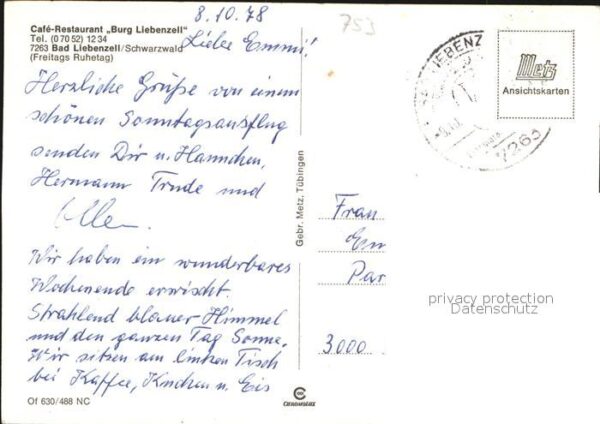 8.10.78
753
Café-Restaurant „Burg Liebenzell"
Tel. (0 70 52) 12 34
7263 Bad Liebenzell/Schwarzwald
(Freitags Ruhetag)
Liebe Emmi!
Herzliche Grüße von einem
schönen Sonntagsausflug
senden Dir u. Hannchen,
Hermann Trude und
Wir haben ein wunderbares
Wochenende erwischt.
Strahlend blauer Himmel
und den ganzen Tag Sonne.
Wir sitzen am linken Tisch
bei Kaffee, Kuchen u. Eis
Of 630/488 NC
Gebr. Metz, Tübingen
LIEBENZ
7263
Metz
Ansichtskarten
Frau
Em
Par
3000
privacy protection
Datenschutz